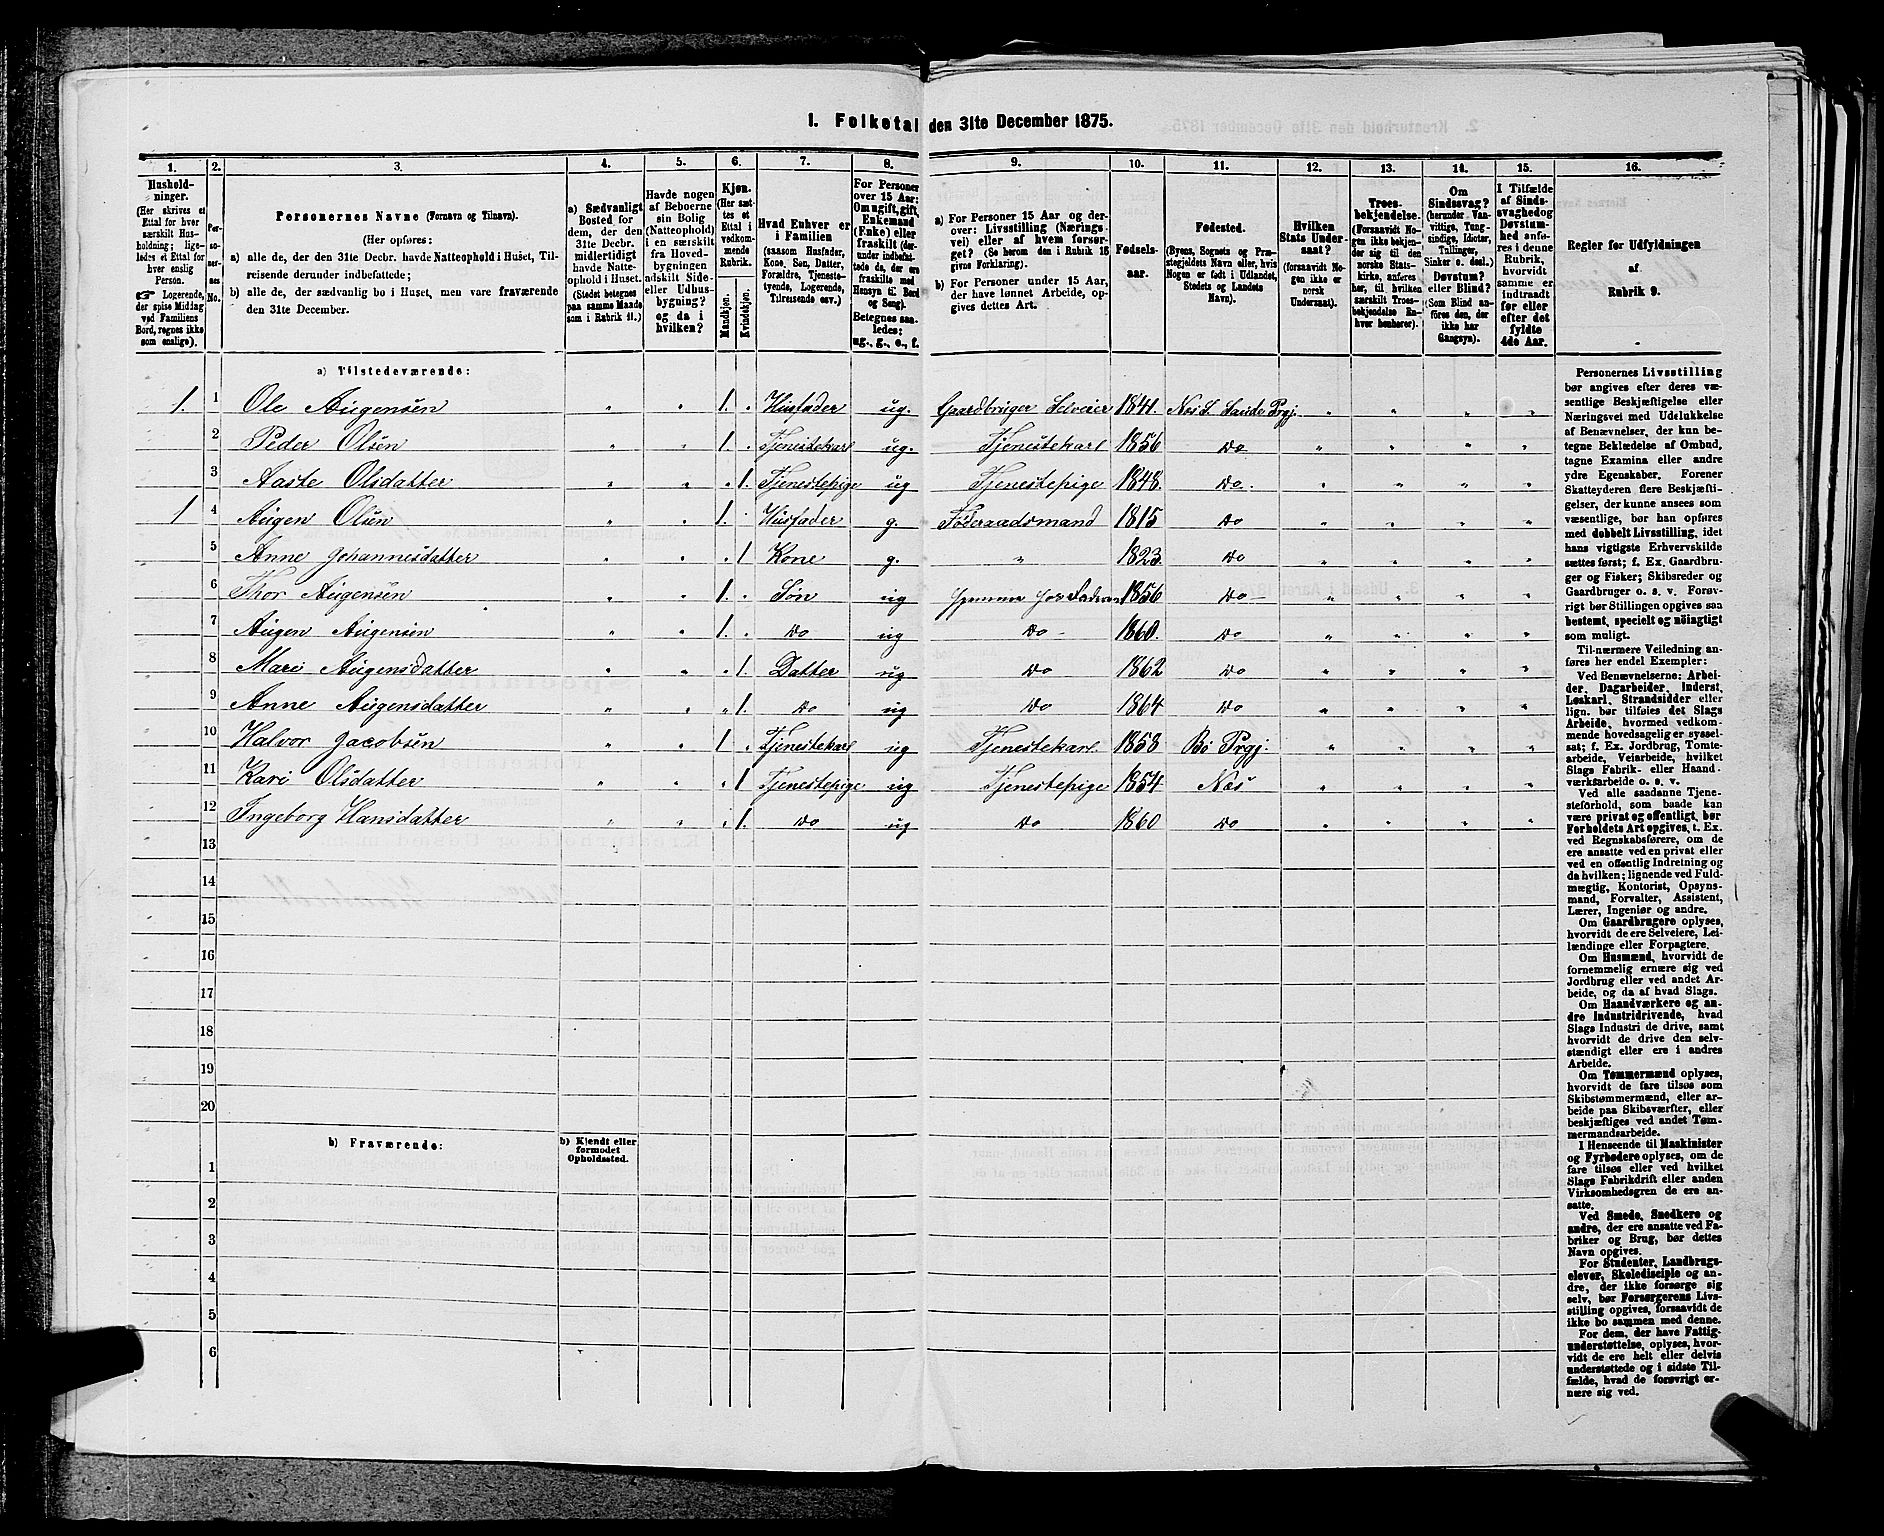 1. Folketal den 31te December 1875.
1. 2. 3. 4. 5. 6. 7. 8. 9. 10. 11. 12. 13. 14. 15. 16.
Hushold-
ninger.
(Her skrives et
Ettal for hver
særskilt Hus-
holdning; lige-
ledes et Ettal for
hver enslig
Person.
☞ Logerende,
der spise Middag
ved Familiens
Bord, regnes ikke
som enslige).
Per-
so-
ner-
nes
No.
Personernes Navne (Fornavn og Tilnavn).
(Her opføres:
a) alle de, der den 31te Decbr. havde Natteophold i Huset, Til-
reisende derunder indbefattede;
b) alle de, der sædvanlig bo i Huset, men vare fraværende
den 31te December.
a) Sædvanligt
Bosted for
dem, der den
31te Decbr.
midlertidigt
havde Natte-
ophold i Huset.
(Stedet betegnes
paa samme Maade
som i Rubrik 11.)
Havde nogen
af Beboerne
sin Bolig
(Natteophold)
i en særskilt
fra Hoved-
bygningen
adskilt Side-
eller Udhus-
bygning?
og da i
hvilken?
Kjøn.
(Her sæt-
tes et
Ettal i
vedkom-
mende
Rubrik.
Mandkjøn.
Kvindekjøn.
Hvad Enhver er
i Familien
(saasom Husfader,
Kone, Søn, Datter,
Forældre, Tjeneste-
tyende, Logerende,
Tilreisende osv.)
For Personer
over 15 Aar:
Om ugift, gift,
Enkemand
(Enke) eller
fraskilt (der-
under indbefat-
tede de, der ere
fraskilte med
Hensyn til Bord
og Seng).
Betegnes saa-
ledes:
ug., g., e., f.
a) For Personer 15 Aar og der-
over: Livsstilling (Nærings-
vei) eller af hvem forsør-
get? (Se herom den i Rubrik 16
givne Forklaring).
b) For Personer under 15 Aar,
der have lønnet Arbeide, op-
gives dettes Art.
Fødsels-
aar.
Fødested.
(Byens, Sognets og Præ-
stegjeldets Navn eller, hvis
Nogen er født i Udlandet,
Stedets og Landets
Navn).
Hvilken
Stats Under-
saat?
(forsaavidt No-
gen ikke er
norsk
Undersaat).
Troes-
bekjendelse.
(Forsaavidt No-
gen ikke bekjen-
der sig til den
norske Stats-
kirke, anføres
her, til hvilken
særskilt Troes-
bekjendelse En-
hver henhører).
Om
Sindssvag?
(herunder Van-
vittige, Tung-
sindige, Idioter,
Tullinger,
Sinker o. desl.)
Døvstum?
eller Blind?
(Som Blind an-
føres den, der
ikke har
Gangsyn).
I Tilfælde
af Sinds-
svaghed og
Døvstum-
hed anfø-
res i denne
Rubrik,
hvorvidt
samme er
indtraadt
før eller
efter det
fyldte
4de Aar.
Regler for Udfyldningen
af
Rubrik 9.
a) Tilstedeværende:
1. 1 Ole Augensen " " 1. " Husfader ug. Gaardbruger Selveier 1841. Næs S. Saude Prgj. " " " "
2 Peder Olsen " " 1. " Tjenestekarl ug. Tjenestekarl 1856 Do " " " "
3 Aaste Olsdatter " " " 1. Tjenestepige ug Tjenestepige 1848. Do " " " "
1 4 Augen Olsen " " 1. Husfader g. Føderaadsmand 1815 Do " " " "
5 Anne Johannesdatter " " " 1 Kone g. " 1823. Do " " " "
6 Thor Augensen " " 1. " Søn ug 1856 Do " " " "
7 Augen Augensen " " 1. " Do ug Do 1860. Do " " " "
8 Mari Augensdatter " " " 1. Datter ug Do 1862 Do " " " "
9 Anne Augensdatter " " " 1. Do ug Do 1864 Do " " " "
10 Halvor Jacobsen " " 1 " Tjenestekarl ug Tjenestekarl 1858 Bø Prgj. " " " "
11 Kari Olsdatter " " " 1 Tjenestepige ug Tjenestepige 1854 Næs " " " "
12 Ingeborg Hansdatter " " " 1. Do ug Do 1860 Do " " " "
13
14
15
16
17
18
19
20
b) Fraværende:
b) Kjendt eller
formodet
Opholdssted.
1
2
3
4
5
6
Personernes Livsstilling
bør angives efter deres væ-
sentlige Beskjæftigelse eller
Næringsvei med Udelukkelse
af Benævnelser, der kun be-
tegne Beklædelse af Ombud,
tagne Examina eller andre
ydre Egenskaber. Forener
Skatteyderen flere Beskjæfti-
gelser, der kunne ansees som
væsentlige, bør han opføres
med dobbelt Livsstilling, idet
hans vigtigste Erhvervskilde
sættes først; f. Ex. Gaardbru-
ger og Fisker; Skibsreder og
Gaardbruger o. s. v. Forøv-
rigt bør Stillingen opgives saa
bestemt, specielt og nöiagtigt
som muligt.
Til nærmere Veiledning an-
føres her endel Exempler:
Ved Benævnelserne: Arbei-
der, Dagarbeider, Inderst,
Løskarl, Strandsidder eller
lign. bør tilføies det Slags
Arbeide, hvormed vedkom-
mende hovedsagelig er syssel-
sat; f. Ex. Jordbrug, Tomte-
arbeide, Veiarbeide, hvilket
Slags Fabrik- eller Haand-
værksarbeide o. s. v.
Ved alle saadanne Tjene-
steforhold, som baade kan
være privat og offentligt, bør
Forholdets Art opgives, t. Ex.
ved Regnskabsførere, om de
ere ansatte ved en privat eller
ved en offentlig Indretning og
da hvilken; lignende ved Fuld-
mægtig, Kontorist, Opsyns-
mand, Forvalter, Assistent,
Lærer, Ingeniør og andre.
Om Gaardbrugere oplyses,
hvorvidt de ere Selveiere, Lei-
lændinge eller Forpagtere.
Om Husmænd, hvorvidt de
fornemmelig ernære sig ved
Jordbrug eller ved andet Ar-
beide, og da af hvad Slags.
Om Haandværkere og an-
dre Industridrivende, hvad
Slags Industri de drive, samt
hvorvidt de drive den selv-
stændigt eller ere i andres
Arbeide.
Om Tømmermænd oplyses,
hvorvidt de fare tilsøs som
Skibstømmermænd, eller ar-
beide paa Skibsværfter, eller
beskjæftiges ved andet Tøm-
mermandsarbeide.
I Henseende til Maskinister
og Fyrbødere oplyses, om de
fare tilsøs eller ved hvilket
Slags Fabrikdrift eller anden
Virksomhedsgren de ere an-
satte.
Ved Smede, Snedkere og
andre, der ere ansatte ved Fa-
briker og Brug, bør dettes
Navn opgives.
For Studenter, Landbrugs-
elever, Skoledisciple og an-
dre, der ikke forsørge sig
selv, bør Forsørgerens Livs-
stilling opgives, forsaavidt de
ikke bo sammen med denne.
For dem, der have Fattig-
understøttelse, oplyses, hvor-
vidt de ere helt eller delvis
understøttede og i sidste Til-
fælde, hvad de forøvrigt er-
nære sig ved.